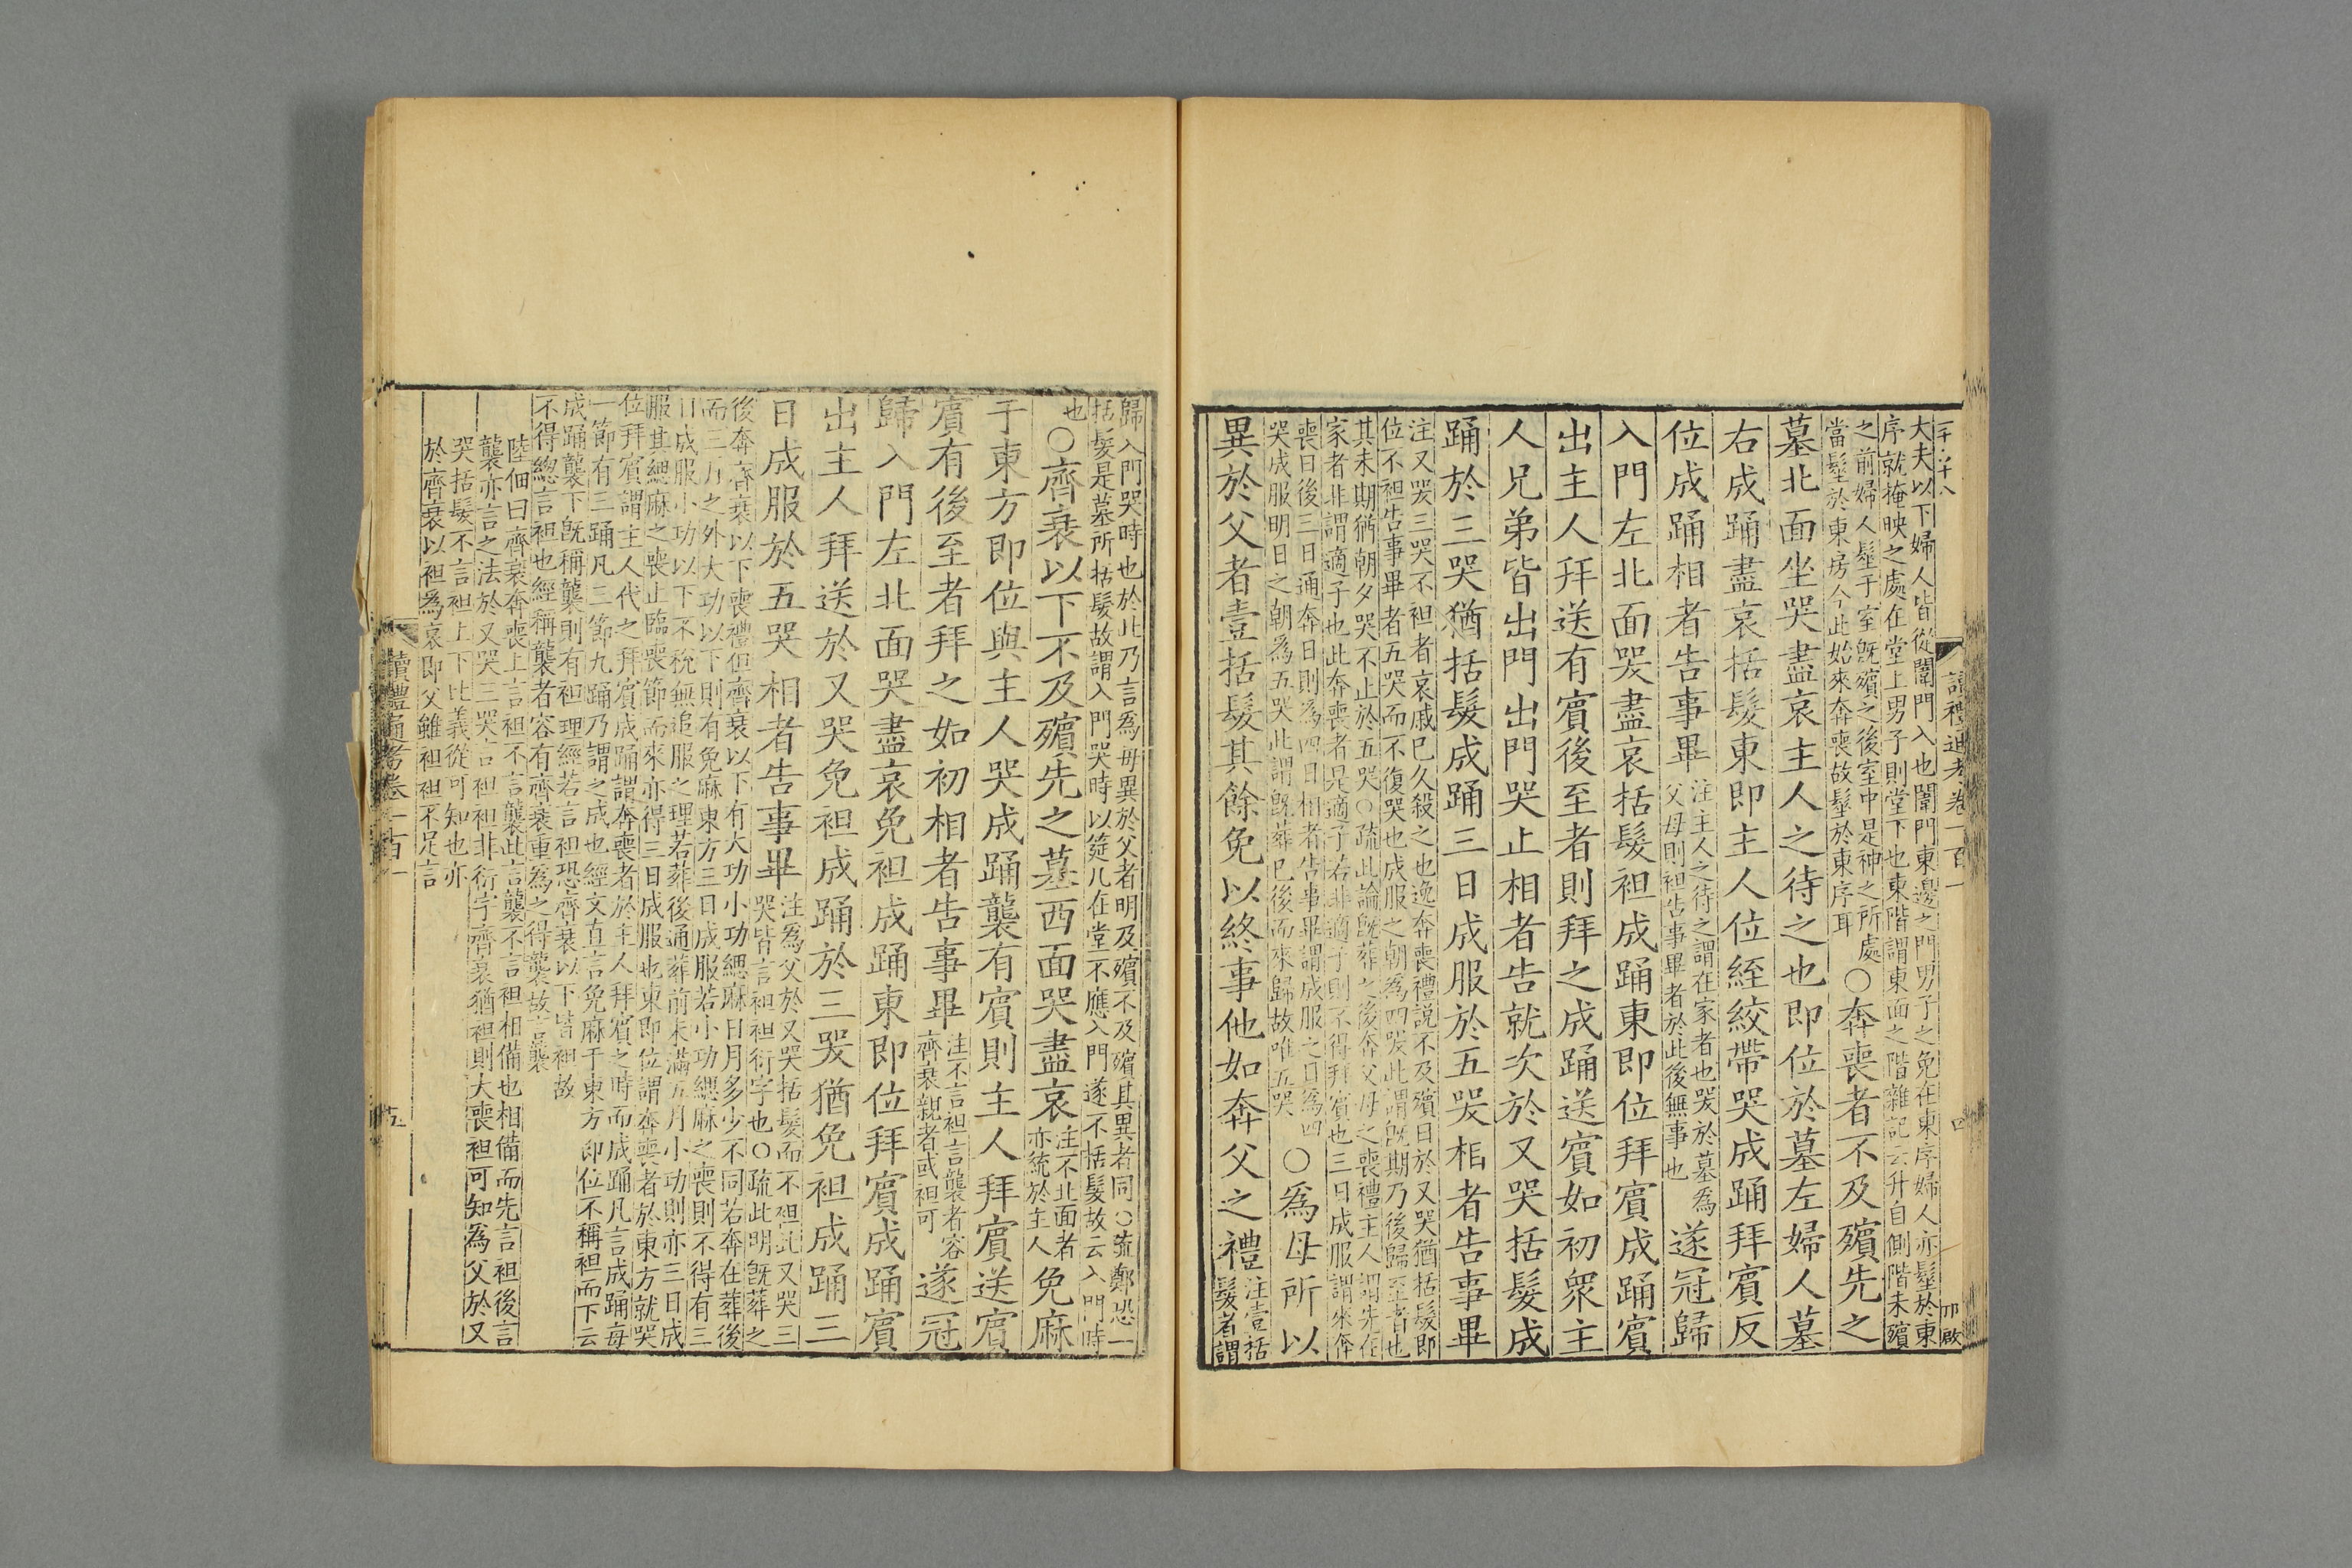 大夫以下婦人皆從闈門入也闈門東邊之門男子之免在東序婦人亦髽於東
序就掩映之處在堂上男子則堂下也東階謂東面之階雜記云升自側階未殯
之前婦人髽于室既殯之後室中是神之所處
當髽於東房今此始來奔喪故髽於東序耳
〇奔喪者不及殯先之
墓北面坐哭盡哀主人之待之也即位於墓左婦人墓
右成踊盡哀括髮東即主人位絰絞帶哭成踊拜賓反
位成踊相者告事畢
注主人之待之謂在家者也哭於墓為
父母則袒告事畢者於此後無事也
遂冠歸
入門左北面哭盡哀括髮袒成踊東即位拜賓成踊賓
出主人拜送有賓後至者則拜之成踊送賓如初眾主
人兄弟皆出門出門哭止相者告就次於又哭括髮成
踊於三哭猶括髮成踊三日成服於五哭相者告事畢
注又哭三哭不袒者哀戚已久殺之也逸奔喪禮説不及殯日於又哭猶括髮即
位不袒告事畢者五哭而不復哭也成服之朝為四哭此謂既期乃後歸至者也
其未期猶朝夕哭不止於五哭〇疏此論既葬之後奔父母之喪禮主人謂先在
家者非謂適子也此奔喪者是適子若非適子則不得拜賓也三日成服謂來奔
喪日後三日通奔日則為四日相者告事畢謂成服之日為四
哭成服明日之朝為五哭此謂既葬已後而來歸故唯五哭
〇為母所以
異於父者壹括髮其餘免以終事他如奔父之禮
注壹括
髮者謂
讀禮通考卷一百一
四
歸入門哭時也於此乃言為母異於父者明及殯不及殯其異者同〇疏鄭恐一
括髮是墓所括髮故謂入門哭時以筵几在堂不應入門遂不括髮故云入門時
也
〇齊衰以下不及殯先之墓西面哭盡哀
注不北面者
亦統於主人
免麻
于東方即位與主人哭成踊襲有賓則主人拜賓送賓
賓有後至者拜之如初相者告事畢
注不言袒言襲者容
齊衰親者或袒可
遂冠
歸入門左北面哭盡哀免袒成踊東即位拜賓成踊賓
出主人拜送於又哭免袒成踊於三哭猶免袒成踊三
日成服於五哭相者告事畢
注為父於又哭括髮而不袒此又哭三
哭皆言袒袒衍字也〇疏此明既葬之
後奔齊衰以下喪禮但齊衰以下有大功小功緦麻日月多少不同若奔在葬後
而三月之外大功以下則有免麻東方三日成服若小功緦麻之喪則不得有三
日成服小功以下不稅無追服之理若葬後通葬前未滿五月小功則亦三日成
服其緦麻之喪止臨喪節而來亦得三日成服也東即位謂奔喪者於東方就哭
位拜賓謂主人代之拜賓成踊謂奔喪者於主人拜賓之時而成踊凡言成踊每
一節有三踊凡三節九踊乃謂之成也經文直言免麻于東方即位不稱袒而下云
成踊襲下既稱襲則有袒理經若言袒恐齊衰以下皆袒故
不得總言袒也經稱襲者容有齊衰重為之得襲故言襲
陸佃曰齊衰奔喪上言袒不言襲此言襲不言袒相備也相備而先言袒後言
襲亦言之法於又哭三哭言袒袒非衍字齊衰猶袒則大喪袒可知為父於又
哭括髮不言袒上下比義從可知也亦
於齊衰以袒為哀即父雖袒袒不足言
讀禮通考卷一百一
五